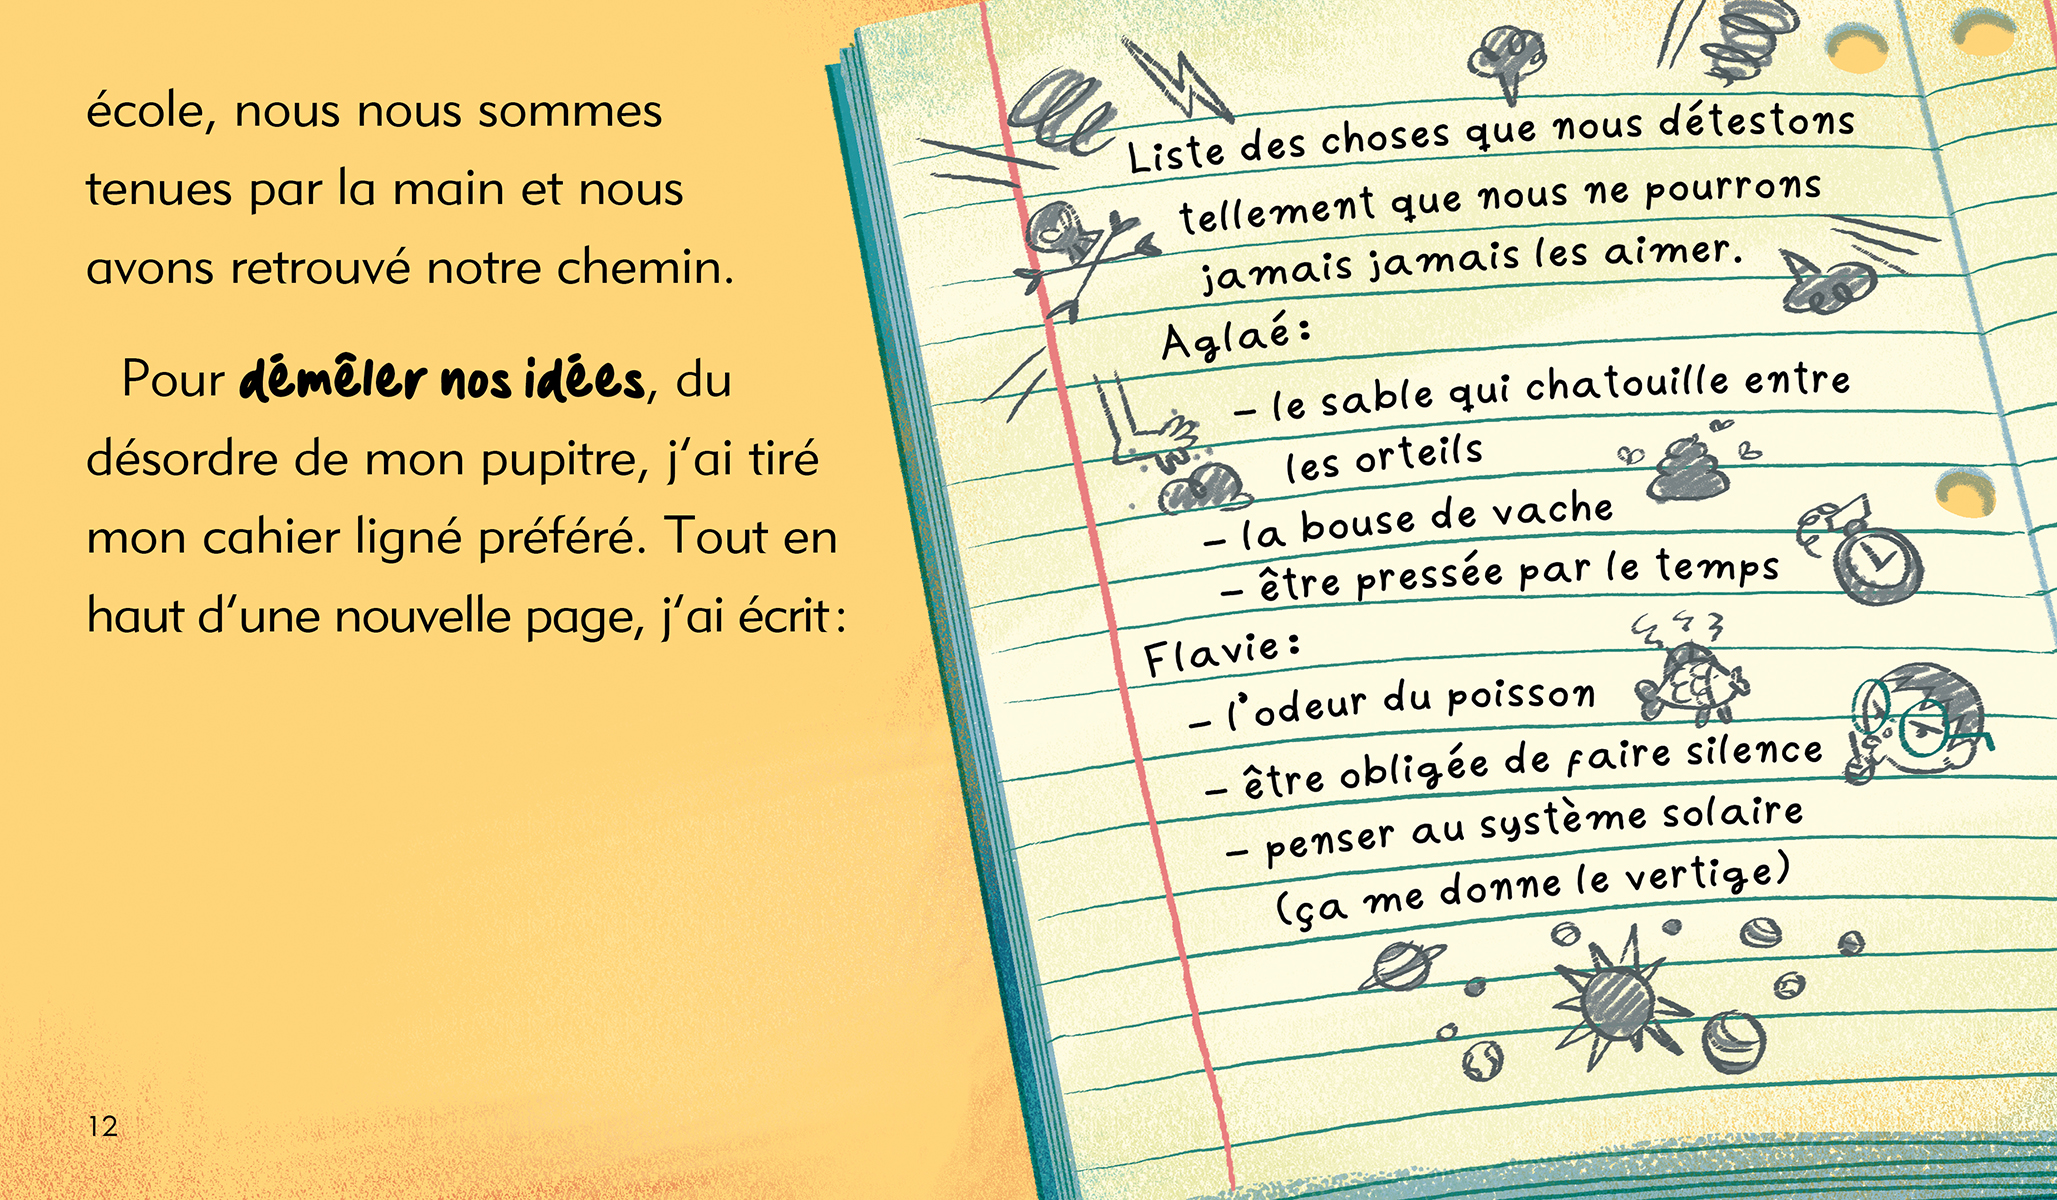 école, nous nous sommes
tenues par la main et nous
avons retrouvé notre chemin.
Pour démêler nos idées, du
désordre de mon pupitre, j'ai tiré
mon cahier ligné préféré. Tout en
haut d'une nouvelle page, j'ai écrit :
12
Liste des choses que nous détestons
tellement que nous ne pourrons
jamais jamais les aimer.
Aglaé :
– le sable qui chatouille entre
les orteils
– la bouse de vache
– être pressée par le temps
Flavie :
– l'odeur du poisson
– être obligée de faire silence
– penser au système solaire
(ça me donne le vertige)